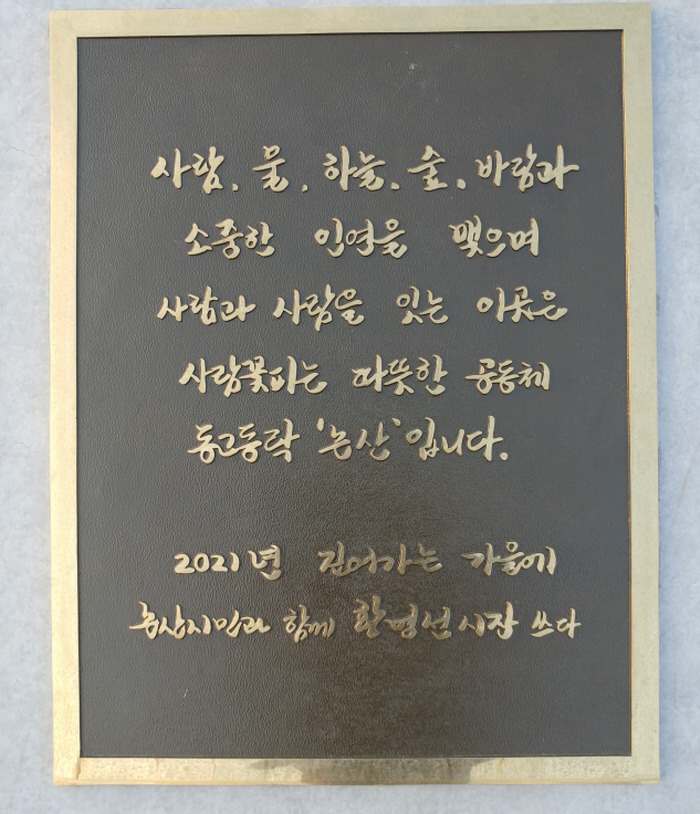 사람, 물, 하늘, 숲, 바람과
소중한 인연을 맺으며
사람과 사람을 잇는 이곳은
사람꽃피는 따뜻한 공동체
동고동락 '논산'입니다.
2021년 깊어가는 가을에
논산시민과 함께 황명선 시장 쓰다